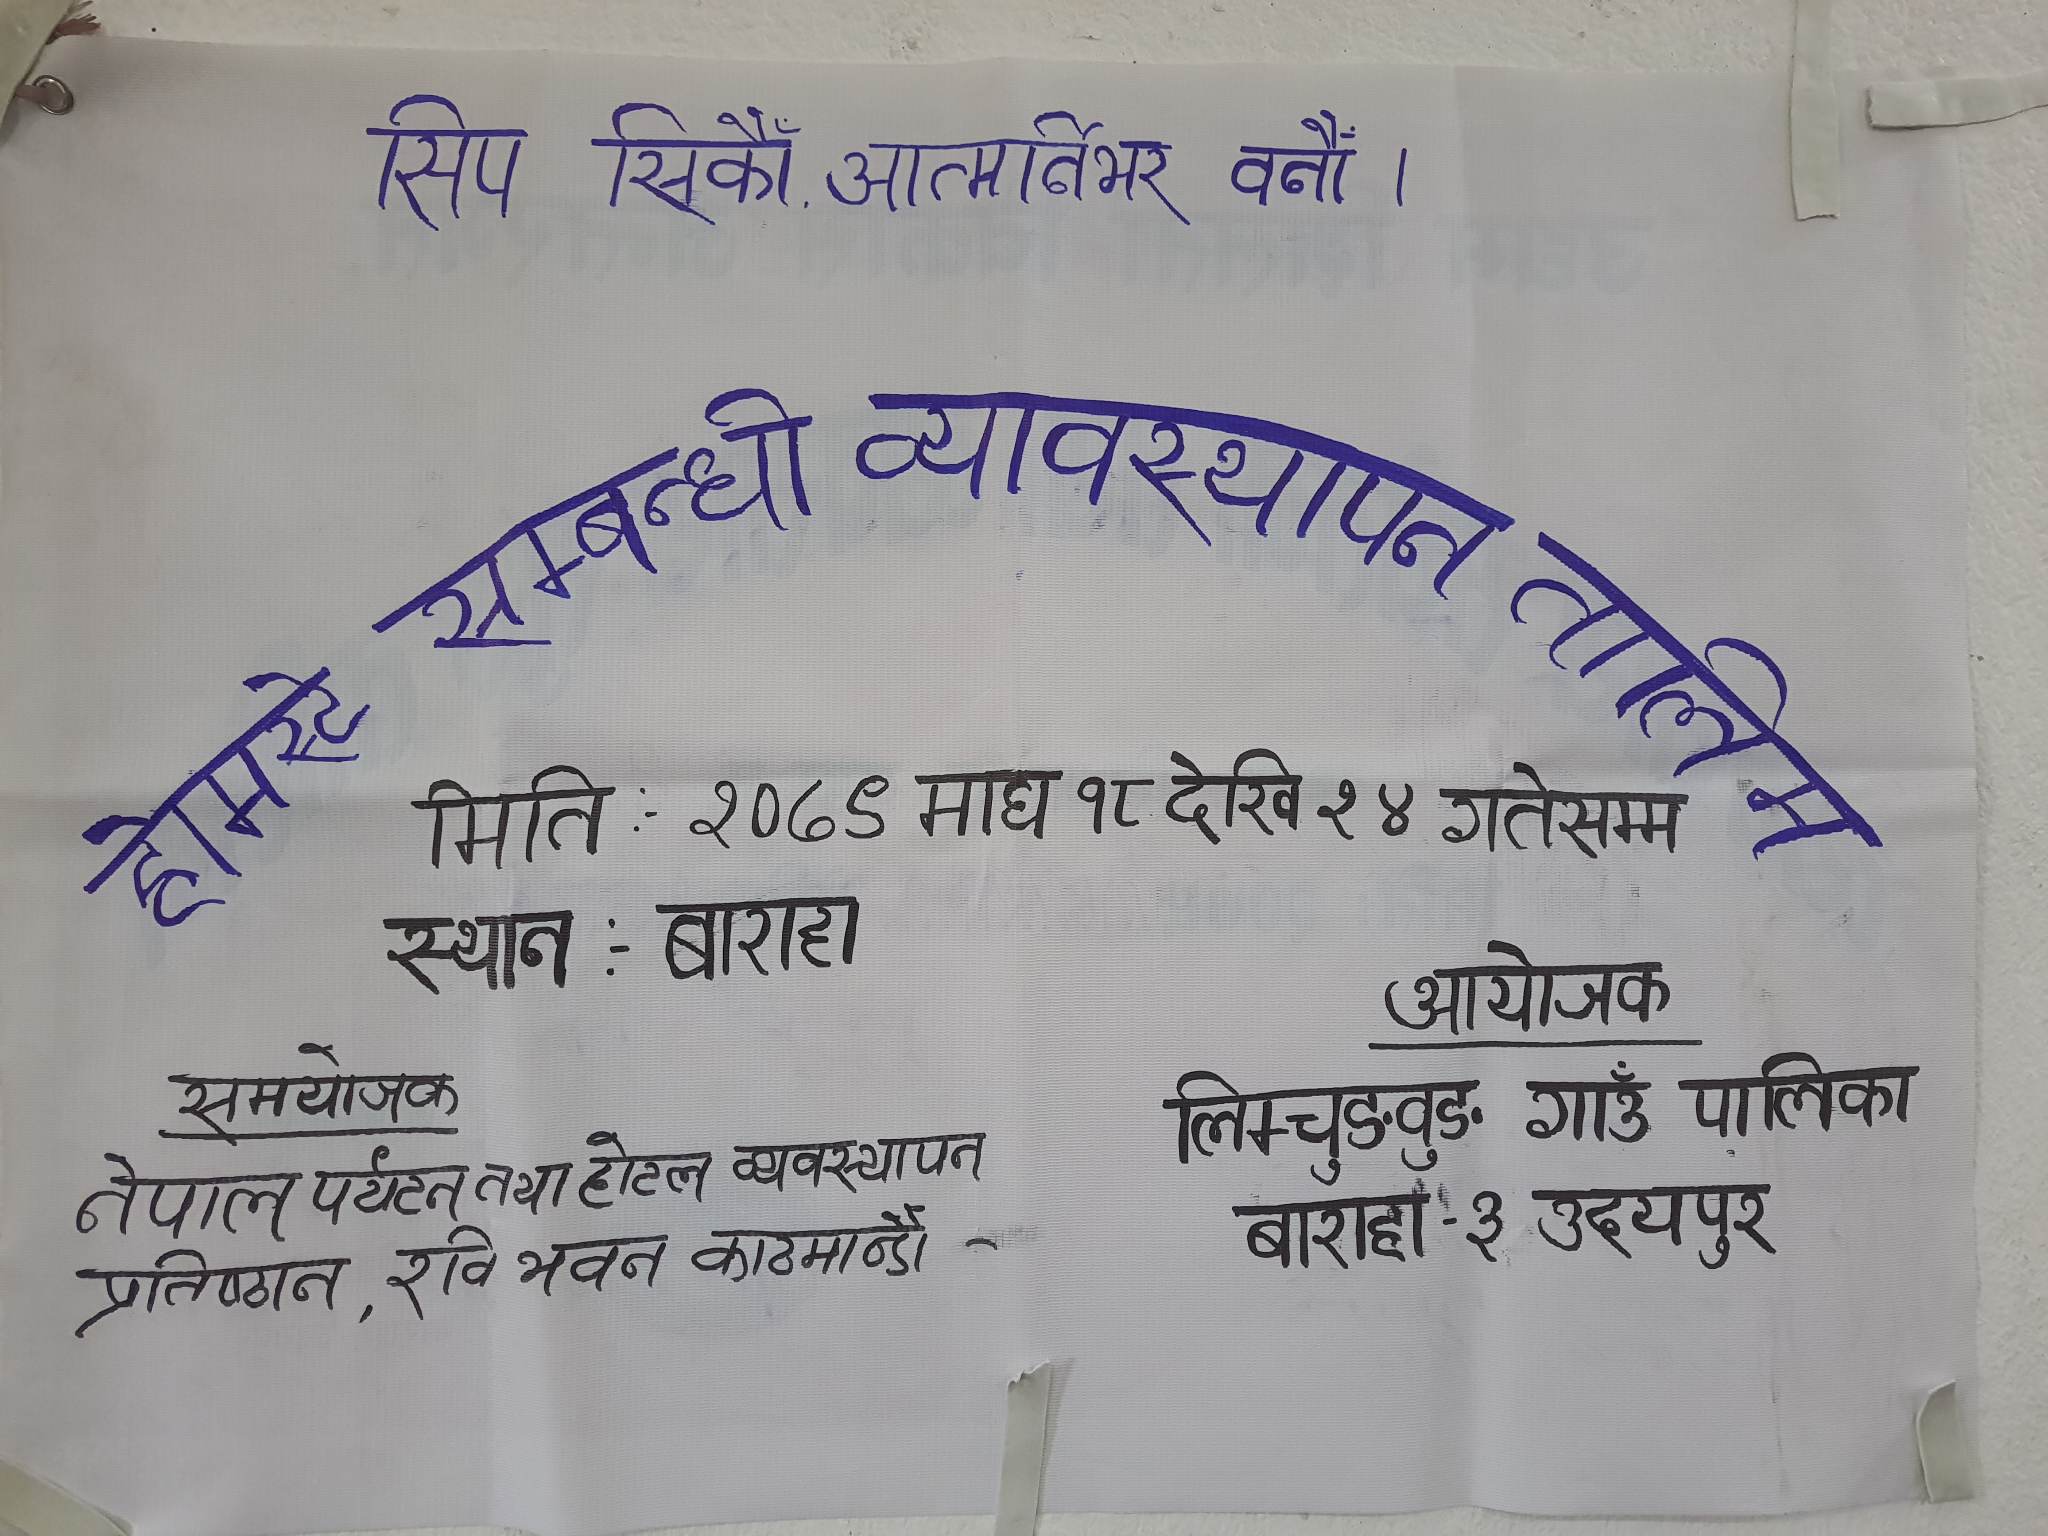 सिप सिकौँ, आत्मर्निभर वनौँ ।
होमस्टे सम्बन्धी व्यावस्थापन तालिम
मिति :- २०७९ माघ १८ देखि २४ गतेसम्म
स्थान :- बाराहा
आयोजक
लिम्चुङवुङ गाउँ पालिका
बाराहा -३ उदयपुर
समयोजक
नेपाल पर्यटन तथा होटल व्यवस्थापन
प्रतिष्ठान, रवि भवन काठमान्डौ -